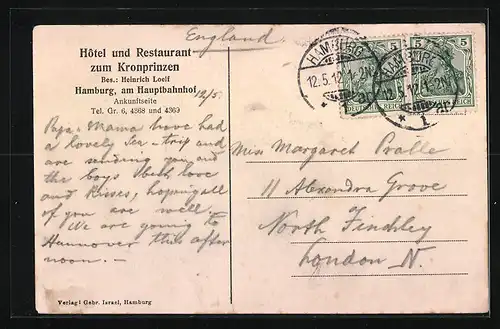 England.
Hôtel und Restaurant
zum Kronprinzen
Bes.: Heinrich Loelf
Hamburg, am Hauptbahnhof
12/5.
Ankunftseite
Tel. Gr. 6, 4368 und 4369
Papa & Mama have had
a lovely Sea-trip and
are sending you and
the boys best love
and Kisses, hoping all
of you are well.
We are going to
Hannover this after
noon. —
Verlag: Gebr. Israel, Hamburg
HAMBURG
12.5.12.
* 1
5
5
DEUTSCHES REICH
HAMBURG
* 1.
Miss Margaret Pralle
11 Alexandra Grove
North Finchley
London N.